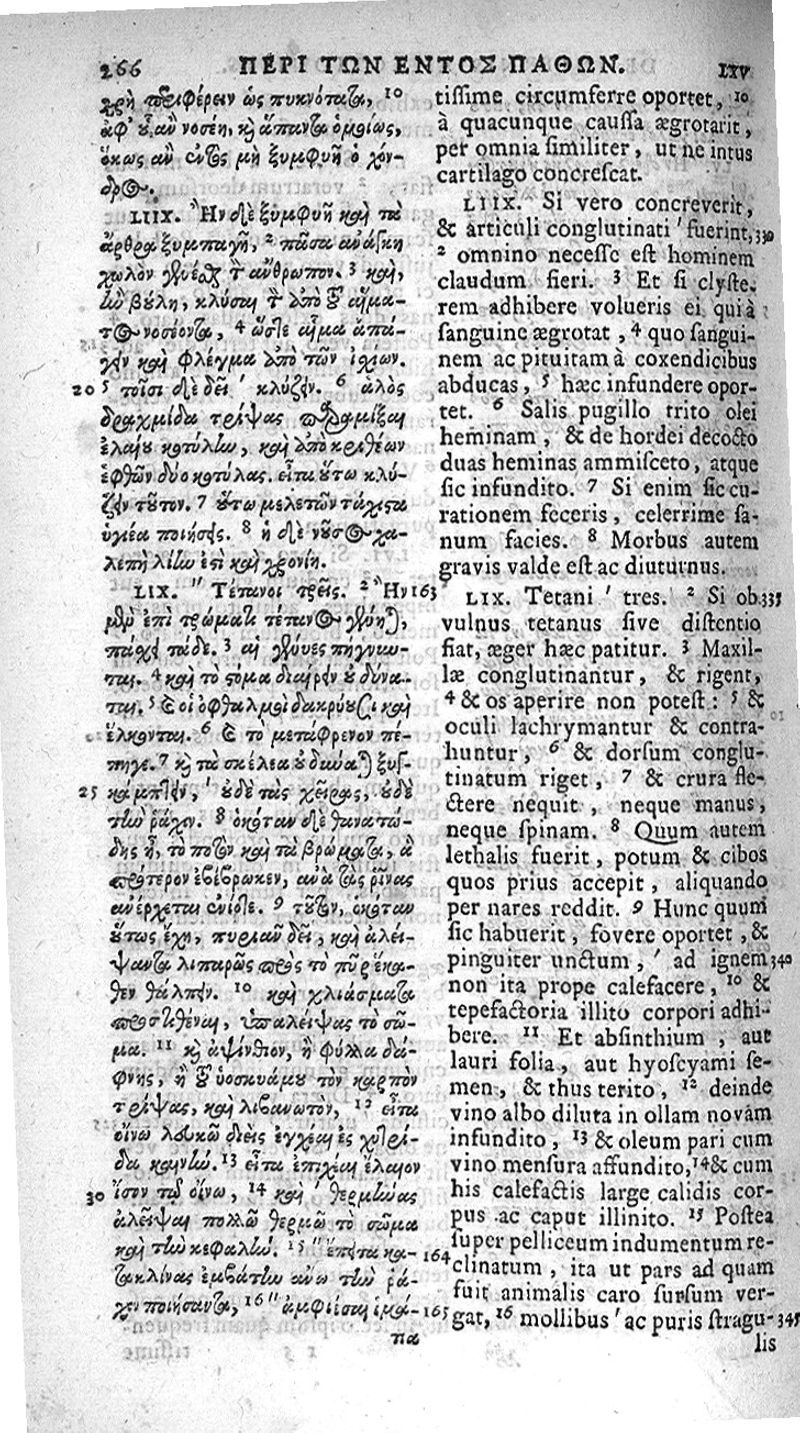 266 ΠΕΡΙ ΤΩΝ ΕΝΤΟΣ ΠΑΘΩΝ. LXV
χρὴ περιφέρειν ὡς πυκνότατα, 10
ἀφ' οὗ ἂν νοσέῃ, κὶ ἅπαντα ὁμοίως,
ὅκως ἂν ἐντὸς μὴ ξυμφυῆ ὁ χόν-
δρος.
LIIX. Ἢν δὲ ξυμφυῆ καὶ τὰ
ἄρθρα ξυμπαγῆ, 2 πᾶσα ἀνάγκη
χωλὸν γενέσθαι τὸν ἄνθρωπον. 3 καὶ,
ἢν βούλῃ, κλύσαι τὸν ἀπὸ τοῦ αἵμα-
τος νοσέοντα, 4 ὥστε αἷμα ἀπά-
γειν καὶ φλέγμα ἀπὸ τῶν ἰχίων.
20 5 τοῖσι δὲ δεῖ ' κλύζειν. 6 ἁλὸς
δραχμίδα τρίψας παραμίξαι
ἐλαίου κοτύλην, καὶ ἀπὸ κριθέων
ἑφθῶν δύο κοτύλας. εἶτα οὕτω κλύ-
ζειν τοῦτον. 7 οὕτω μελετῶν τάχιστα
ὑγιέα ποιήσεις. 8 ἡ δὲ νοῦσος χα-
λεπὴ λίην ἐστὶ καὶ χρονίη.
LIX. " Τέτανοι τρεῖς. 2 Ἢν 163
μὲν ἐπὶ τρώματι τέτανος γένηται,
πάσχει τάδε. 3 αἱ γένυες πήγνυν-
ται. 4 καὶ τὸ στόμα διαίρειν οὐ δύνα-
ται. 5 καὶ οἱ ὀφθαλμοὶ δακρύουσι καὶ
ἕλκονται. 6 καὶ τὸ μετάφρενον πέ-
πηγε. 7 κὶ τὰ σκέλεα οὐ δύναται ξυγ-
25 κάμπτειν, ' οὐδὲ τὰς χεῖρας, οὐδὲ
τὴν ῥάχιν. 8 ὁκόταν δὲ θανατώ-
δης ᾖ, τὸ ποτὸν καὶ τὰ βρώματα, ἃ
πρότερον ἐβεβρώκεν, ἀνὰ τὰς ῥῖνας
ἀνέρχεται ἐνίοτε. 9 τοῦτον, ὁκόταν
οὕτως ἔχῃ, πυριᾶν δεῖ, καὶ ἀλεί-
ψαντα λιπαρῶς πρὸς τὸ πῦρ ἕκα-
θεν θάλπειν. 10 καὶ χλιάσματα
προστιθέναι, ὑπαλείψας τὸ σῶ-
μα. 11 κὶ ἀψίνθιον, ἢ φύλλα δά-
φνης, ἢ τοῦ ὑοσκυάμου τὸν καρπὸν
τρίψας, καὶ λιβανωτὸν, 12 εἶτα
οἴνῳ λευκῷ διεὶς ἐγχέαι ἐς χυτρί-
δα καινήν. 13 εἶτα ἐπιχέαι ἔλαιον
30 ἴσον τῷ οἴνῳ, 14 καὶ ' θερμήνας
ἀλεῖψαι πολλῷ θερμῷ τὸ σῶμα
καὶ τὴν κεφαλήν. 15 " ἔπειτα κα- 164
τακλίνας ἐμβάτην ἄνω τὴν ῥά-
χιν ποιήσαντα, 16 " ἀμφιέσαι ἱμά- 165
τια
tissime circumferre oportet, 10
à quacunque caussa ægrotarit,
per omnia similiter, ut ne intus
cartilago concrescat.
LIIX. Si vero concreverit,
& articuli conglutinati ' fuerint, 330
2 omnino necesse est hominem
claudum fieri. 3 Et si clyste-
rem adhibere volueris ei qui à
sanguine ægrotat, 4 quo sangui-
nem ac pituitam à coxendicibus
abducas, 5 hæc infundere opor-
tet. 6 Salis pugillo trito olei
heminam, & de hordei decocto
duas heminas ammisceto, atque
sic infundito. 7 Si enim sic cu-
rationem feceris, celerrime sa-
num facies. 8 Morbus autem
gravis valde est ac diuturnus.
LIX. Tetani ' tres. 2 Si ob 335
vulnus tetanus sive distentio
fiat, æger hæc patitur. 3 Maxil-
læ conglutinantur, & rigent,
4 & os aperire non potest: 5 &
oculi lachrymantur & contra-
huntur, 6 & dorsum conglu-
tinatum riget, 7 & crura fle-
ctere nequit, neque manus,
neque spinam. 8 Quum autem
lethalis fuerit, potum & cibos
quos prius accepit, aliquando
per nares reddit. 9 Hunc quum
sic habuerit, fovere oportet, &
pinguiter unctum, ' ad ignem 340
non ita prope calefacere, 10 &
tepefactoria illito corpori adhi-
bere. 11 Et absinthium, aut
lauri folia, aut hyoscyami se-
men, & thus terito, 12 deinde
vino albo diluta in ollam novam
infundito, 13 & oleum pari cum
vino mensura affundito, 14 & cum
his calefactis large calidis cor-
pus ac caput illinito. 15 Postea
super pelliceum indumentum re-
clinatum, ita ut pars ad quam
fuit animalis caro sursum ver-
gat, 16 mollibus ' ac puris stragu- 345
lis